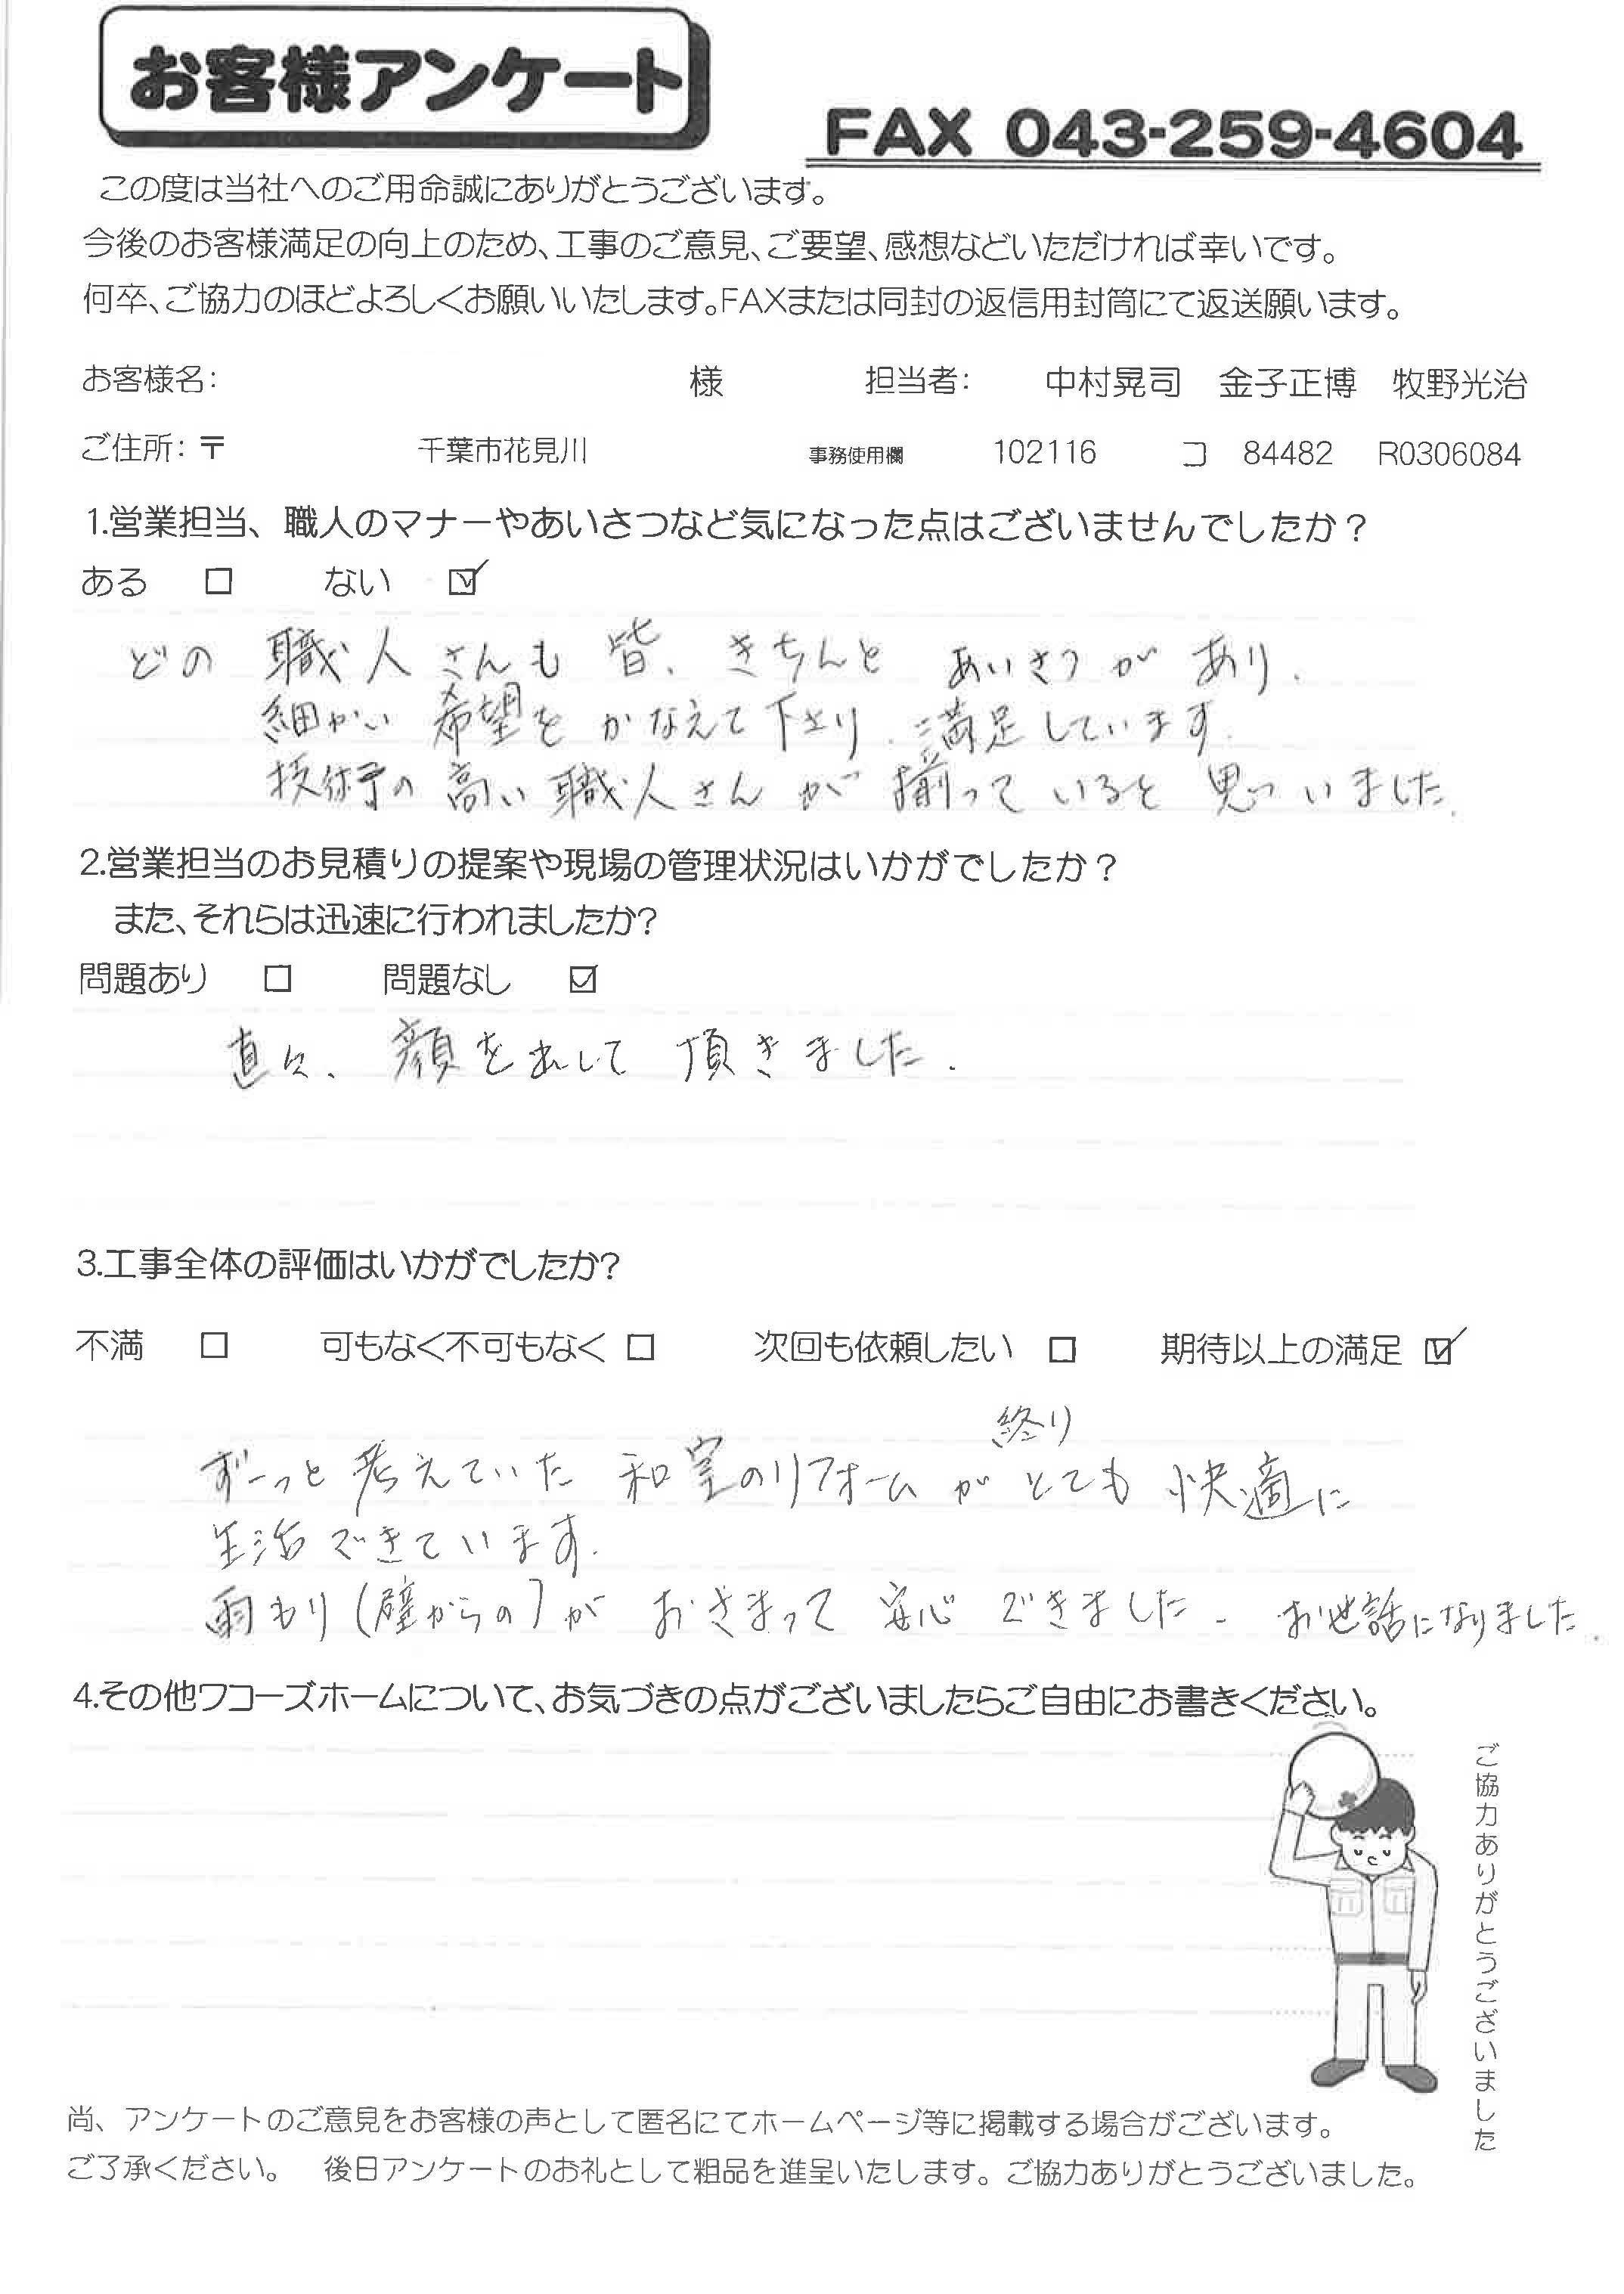 お客様アンケート
FAX 043-259-4604
この度は当社へのご用命誠にありがとうございます。
今後のお客様満足の向上のため、工事のご意見、ご要望、感想などいただければ幸いです。
何卒、ご協力のほどよろしくお願いいたします。FAXまたは同封の返信用封筒にて返送願います。
お客様名： 様 担当者： 中村晃司 金子正博 牧野光治
ご住所：〒 千葉市花見川 事務使用欄 102116 コ 84482 R0306084
1.営業担当、職人のマナーやあいさつなど気になった点はございませんでしたか？
ある □ ない ☑
どの職人さんも皆、きちんとあいさつがあり、
細かい希望をかなえて下さり、満足しています。
技術の高い職人さんが揃っていると思いました。
2.営業担当のお見積りの提案や現場の管理状況はいかがでしたか？
また、それらは迅速に行われましたか?
問題あり □ 問題なし ☑
直々、顔を出して頂きました。
3.工事全体の評価はいかがでしたか?
不満 □ 可もなく不可もなく □ 次回も依頼したい □ 期待以上の満足 ☑
ずーっと考えていた和室のリフォームが終りとても快適に
生活できています。
雨もり(壁からの)がおさまって安心できました。お世話になりました。
4.その他ワコーズホームについて、お気づきの点がございましたらご自由にお書きください。
ご協力ありがとうございました
尚、アンケートのご意見をお客様の声として匿名にてホームページ等に掲載する場合がございます。
ご了承ください。 後日アンケートのお礼として粗品を進呈いたします。ご協力ありがとうございました。